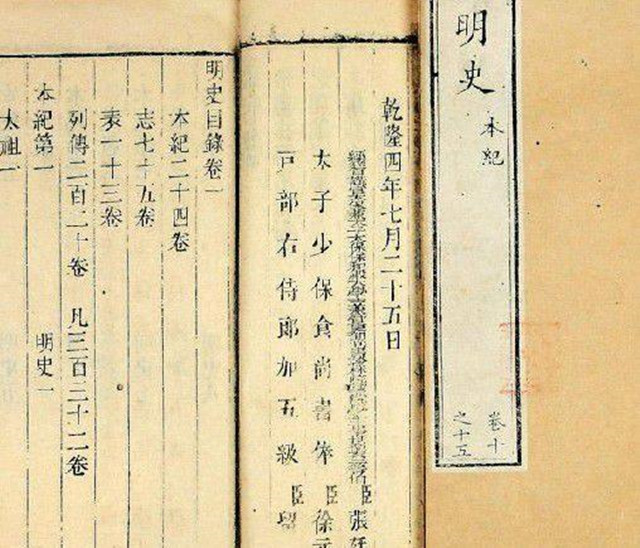 明史
本紀
卷十
之十五
乾隆四年七月二十五日
臣張
太子少保食尚書俸 臣徐元
戶部右侍郎加五級 臣留
明史目錄卷一
本紀二十四卷
志七十五卷
表一十三卷
列傳二百二十卷 凡三百三十二卷
本紀第一 明史一
太祖一